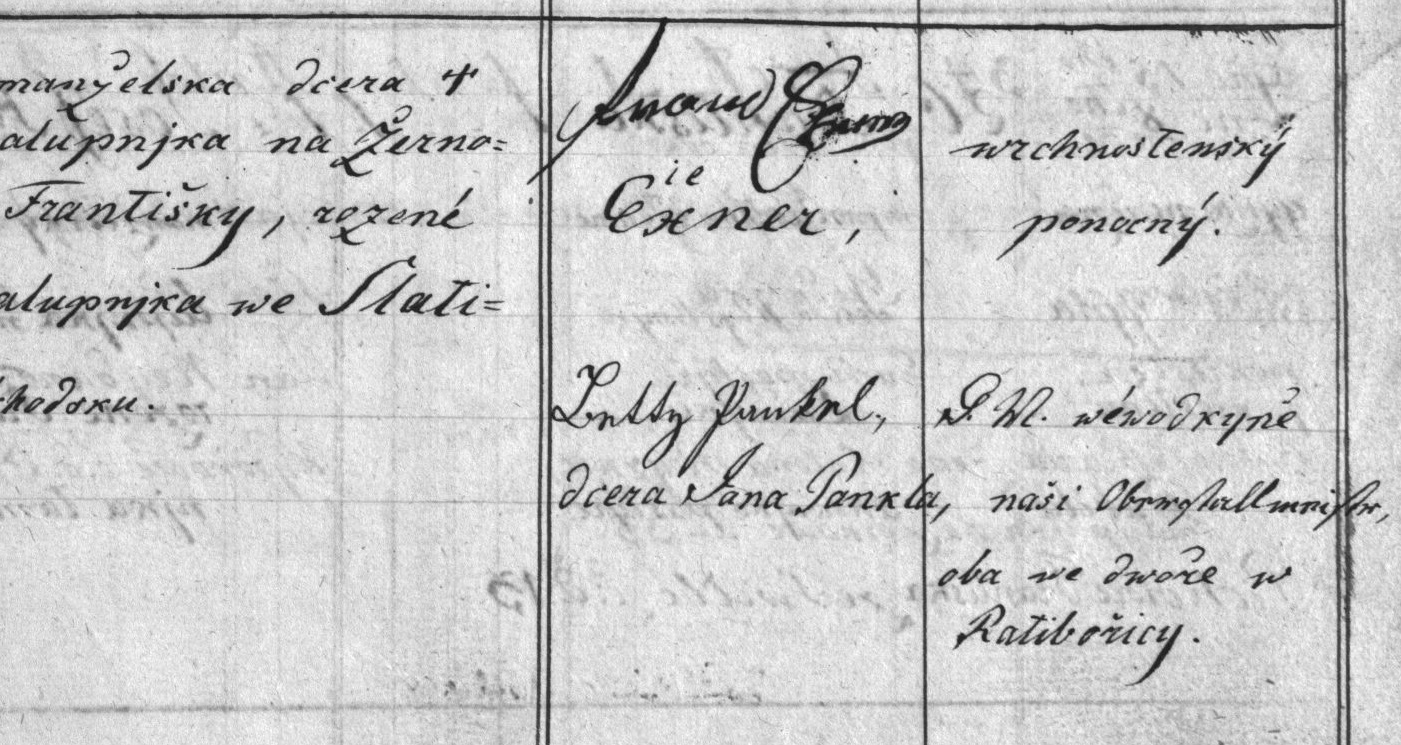 manželska dcera †
alupnjka na Žerno=
Františky, rozené
alupnjka we Slati=
chodsku.
Exner,
ie
Betty Pankl,
dcera Jana Pankla,
wrchnostenský
ponocný.
J. W. wéwodkyně
naši Oberstallmeister,
oba we dwoře w
Ratibořicy.